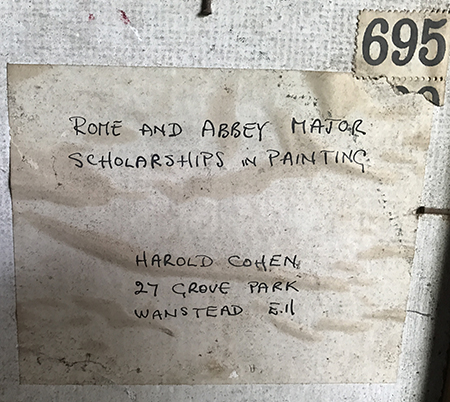 695
ROME AND ABBEY MAJOR
SCHOLARSHIPS IN PAINTING.
HAROLD COHEN
27 GROVE PARK
WANSTEAD E.11